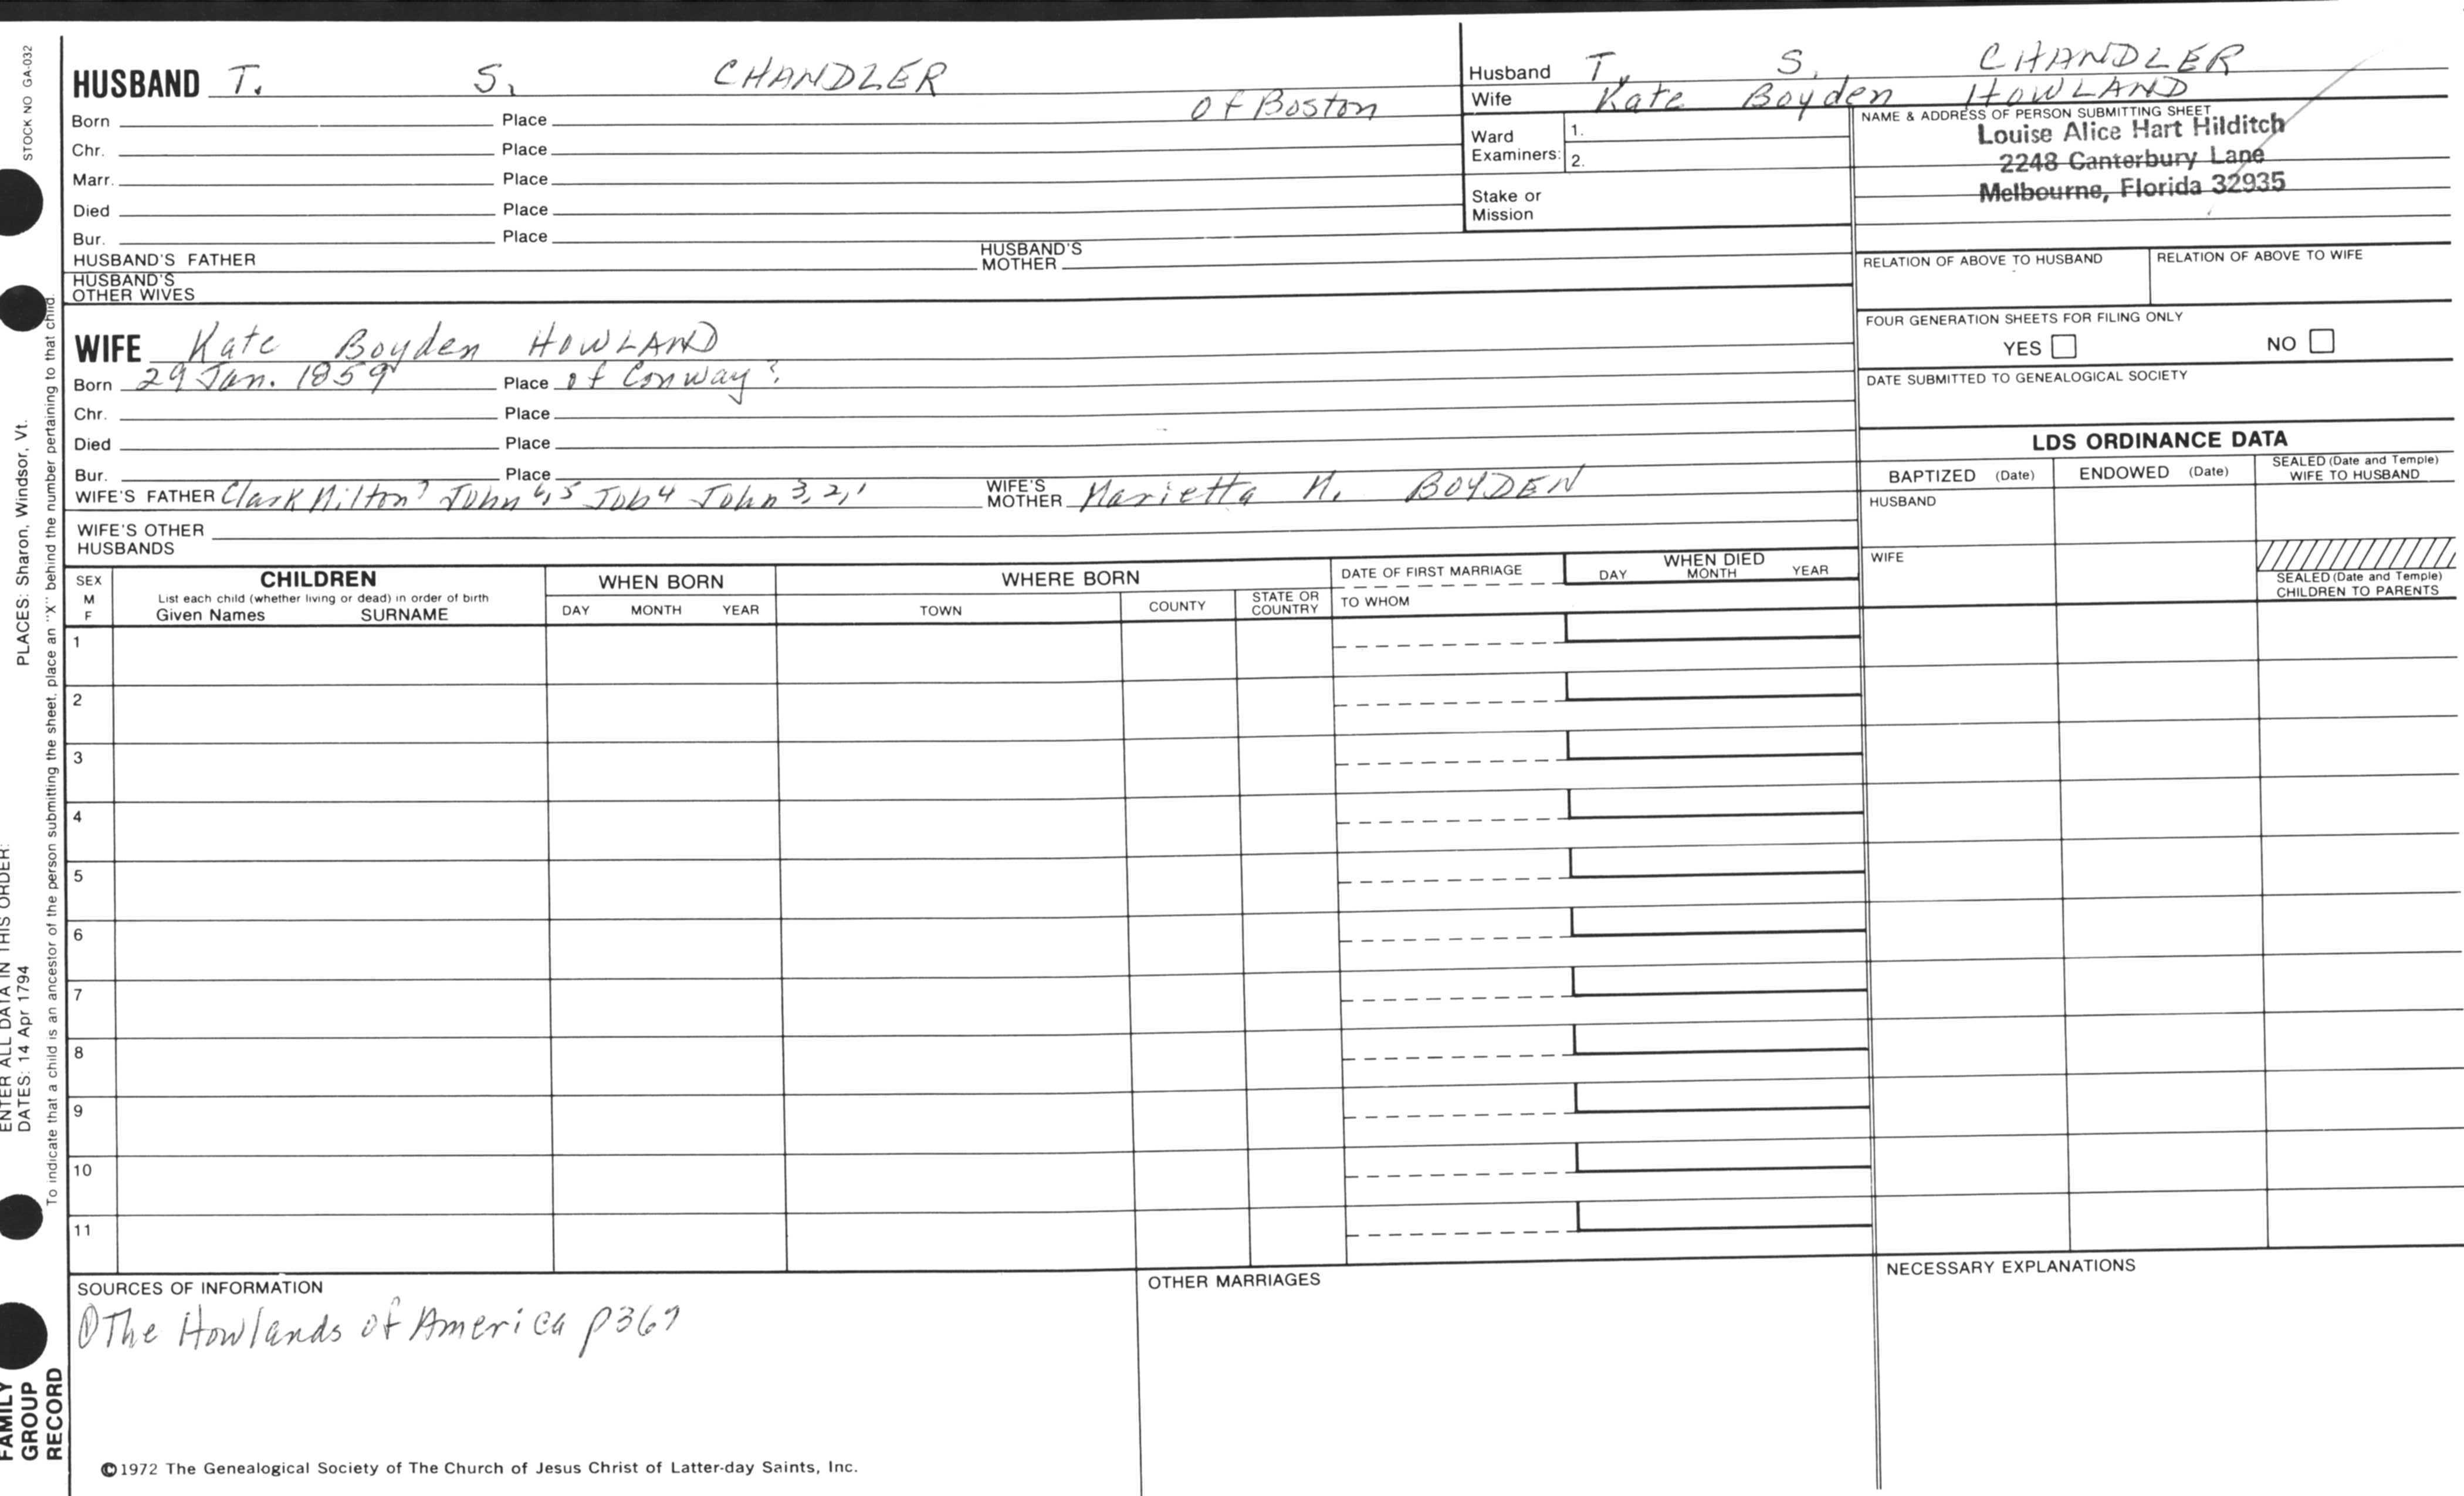 STOCK NO GA-032
PLACES: Sharon, Windsor, Vt.
ENTER ALL DATA IN THIS ORDER:
DATES: 14 Apr 1794
To indicate that a child is an ancestor of the person submitting the sheet, place an "X" behind the number pertaining to that child.
FAMILY
GROUP
RECORD
HUSBAND T. S. CHANDLER
Born Place of Boston
Chr. Place
Marr. Place
Died Place
Bur. Place
HUSBAND'S FATHER HUSBAND'S MOTHER
HUSBAND'S OTHER WIVES
Husband T. S. CHANDLER
Wife Kate Boyden HOWLAND
Ward Examiners: 1.
2.
Stake or Mission
NAME & ADDRESS OF PERSON SUBMITTING SHEET
Louise Alice Hart Hilditch
2248 Canterbury Lane
Melbourne, Florida 32935
RELATION OF ABOVE TO HUSBAND RELATION OF ABOVE TO WIFE
FOUR GENERATION SHEETS FOR FILING ONLY
YES NO
DATE SUBMITTED TO GENEALOGICAL SOCIETY
WIFE Kate Boyden HOWLAND
Born 29 Jan. 1859 Place of Conway?
Chr. Place
Died Place
Bur. Place
WIFE'S FATHER Clark Milton7 John6,5 Job4 John3,2,1 WIFE'S MOTHER Marietta N. BOYDEN
WIFE'S OTHER HUSBANDS
LDS ORDINANCE DATA
BAPTIZED (Date) ENDOWED (Date) SEALED (Date and Temple) WIFE TO HUSBAND
HUSBAND
WIFE
SEALED (Date and Temple) CHILDREN TO PARENTS
SEX M F
CHILDREN
List each child (whether living or dead) in order of birth
Given Names SURNAME
WHEN BORN
DAY MONTH YEAR
WHERE BORN
TOWN COUNTY STATE OR COUNTRY
DATE OF FIRST MARRIAGE
TO WHOM
WHEN DIED
DAY MONTH YEAR
1
2
3
4
5
6
7
8
9
10
11
SOURCES OF INFORMATION
① The Howlands of America p367
OTHER MARRIAGES
NECESSARY EXPLANATIONS
©1972 The Genealogical Society of The Church of Jesus Christ of Latter-day Saints, Inc.